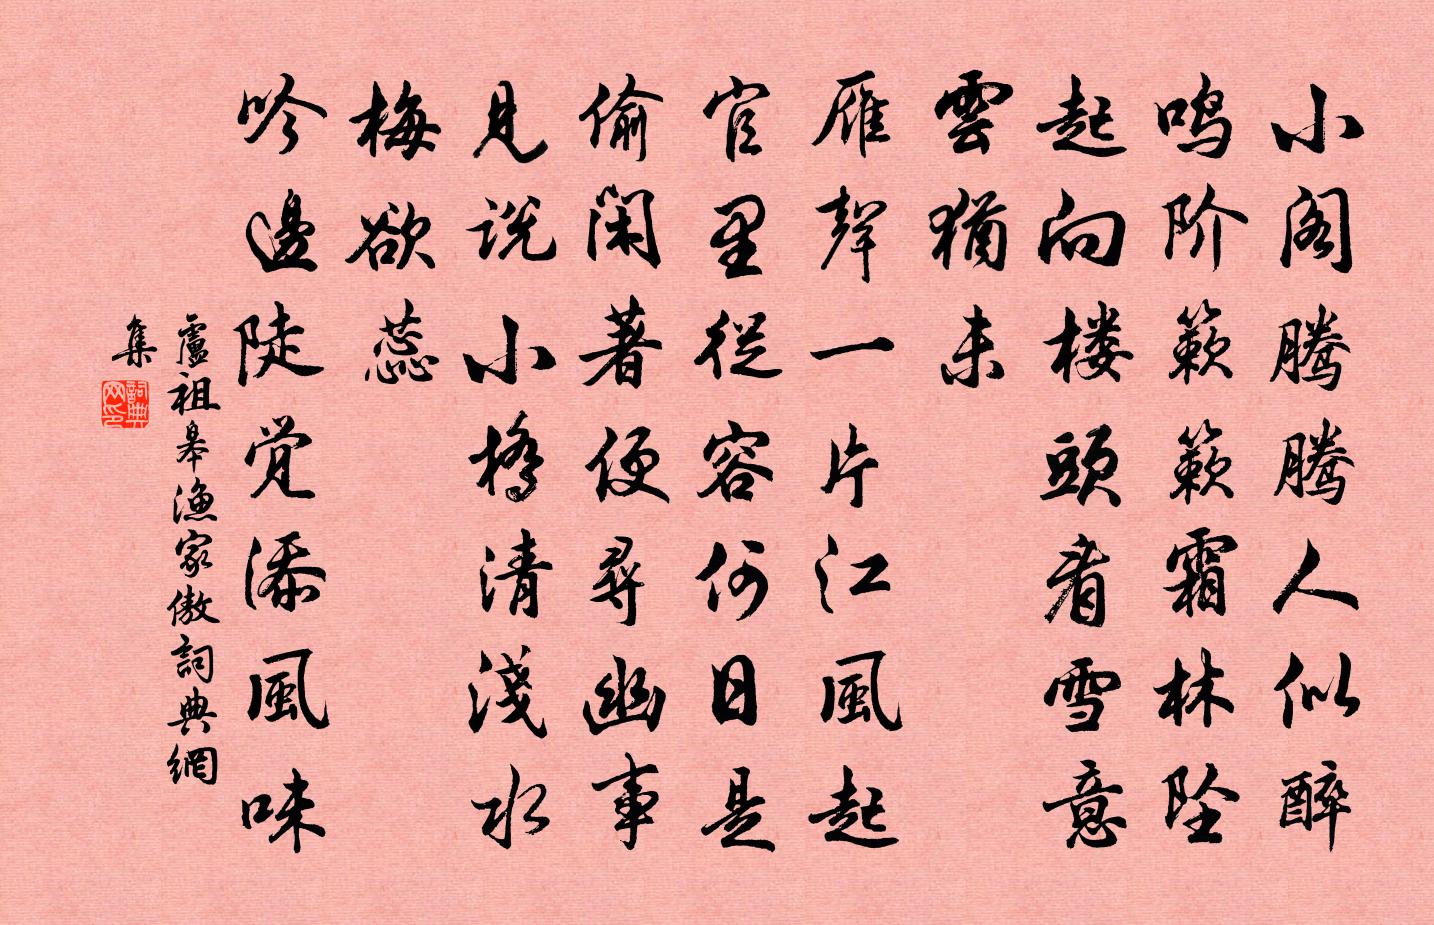 小阁腾腾人似醉
鸣阶簌簌霜林坠
起向楼頭看雪意
雲猶未
雁聲一片江風起
官里從容何日是
偷閑著便尋幽事
見说小橋清淺水
梅欲蕊
吟邊陡觉添風味
盧祖皋漁家傲詞典網
集
詞典網印